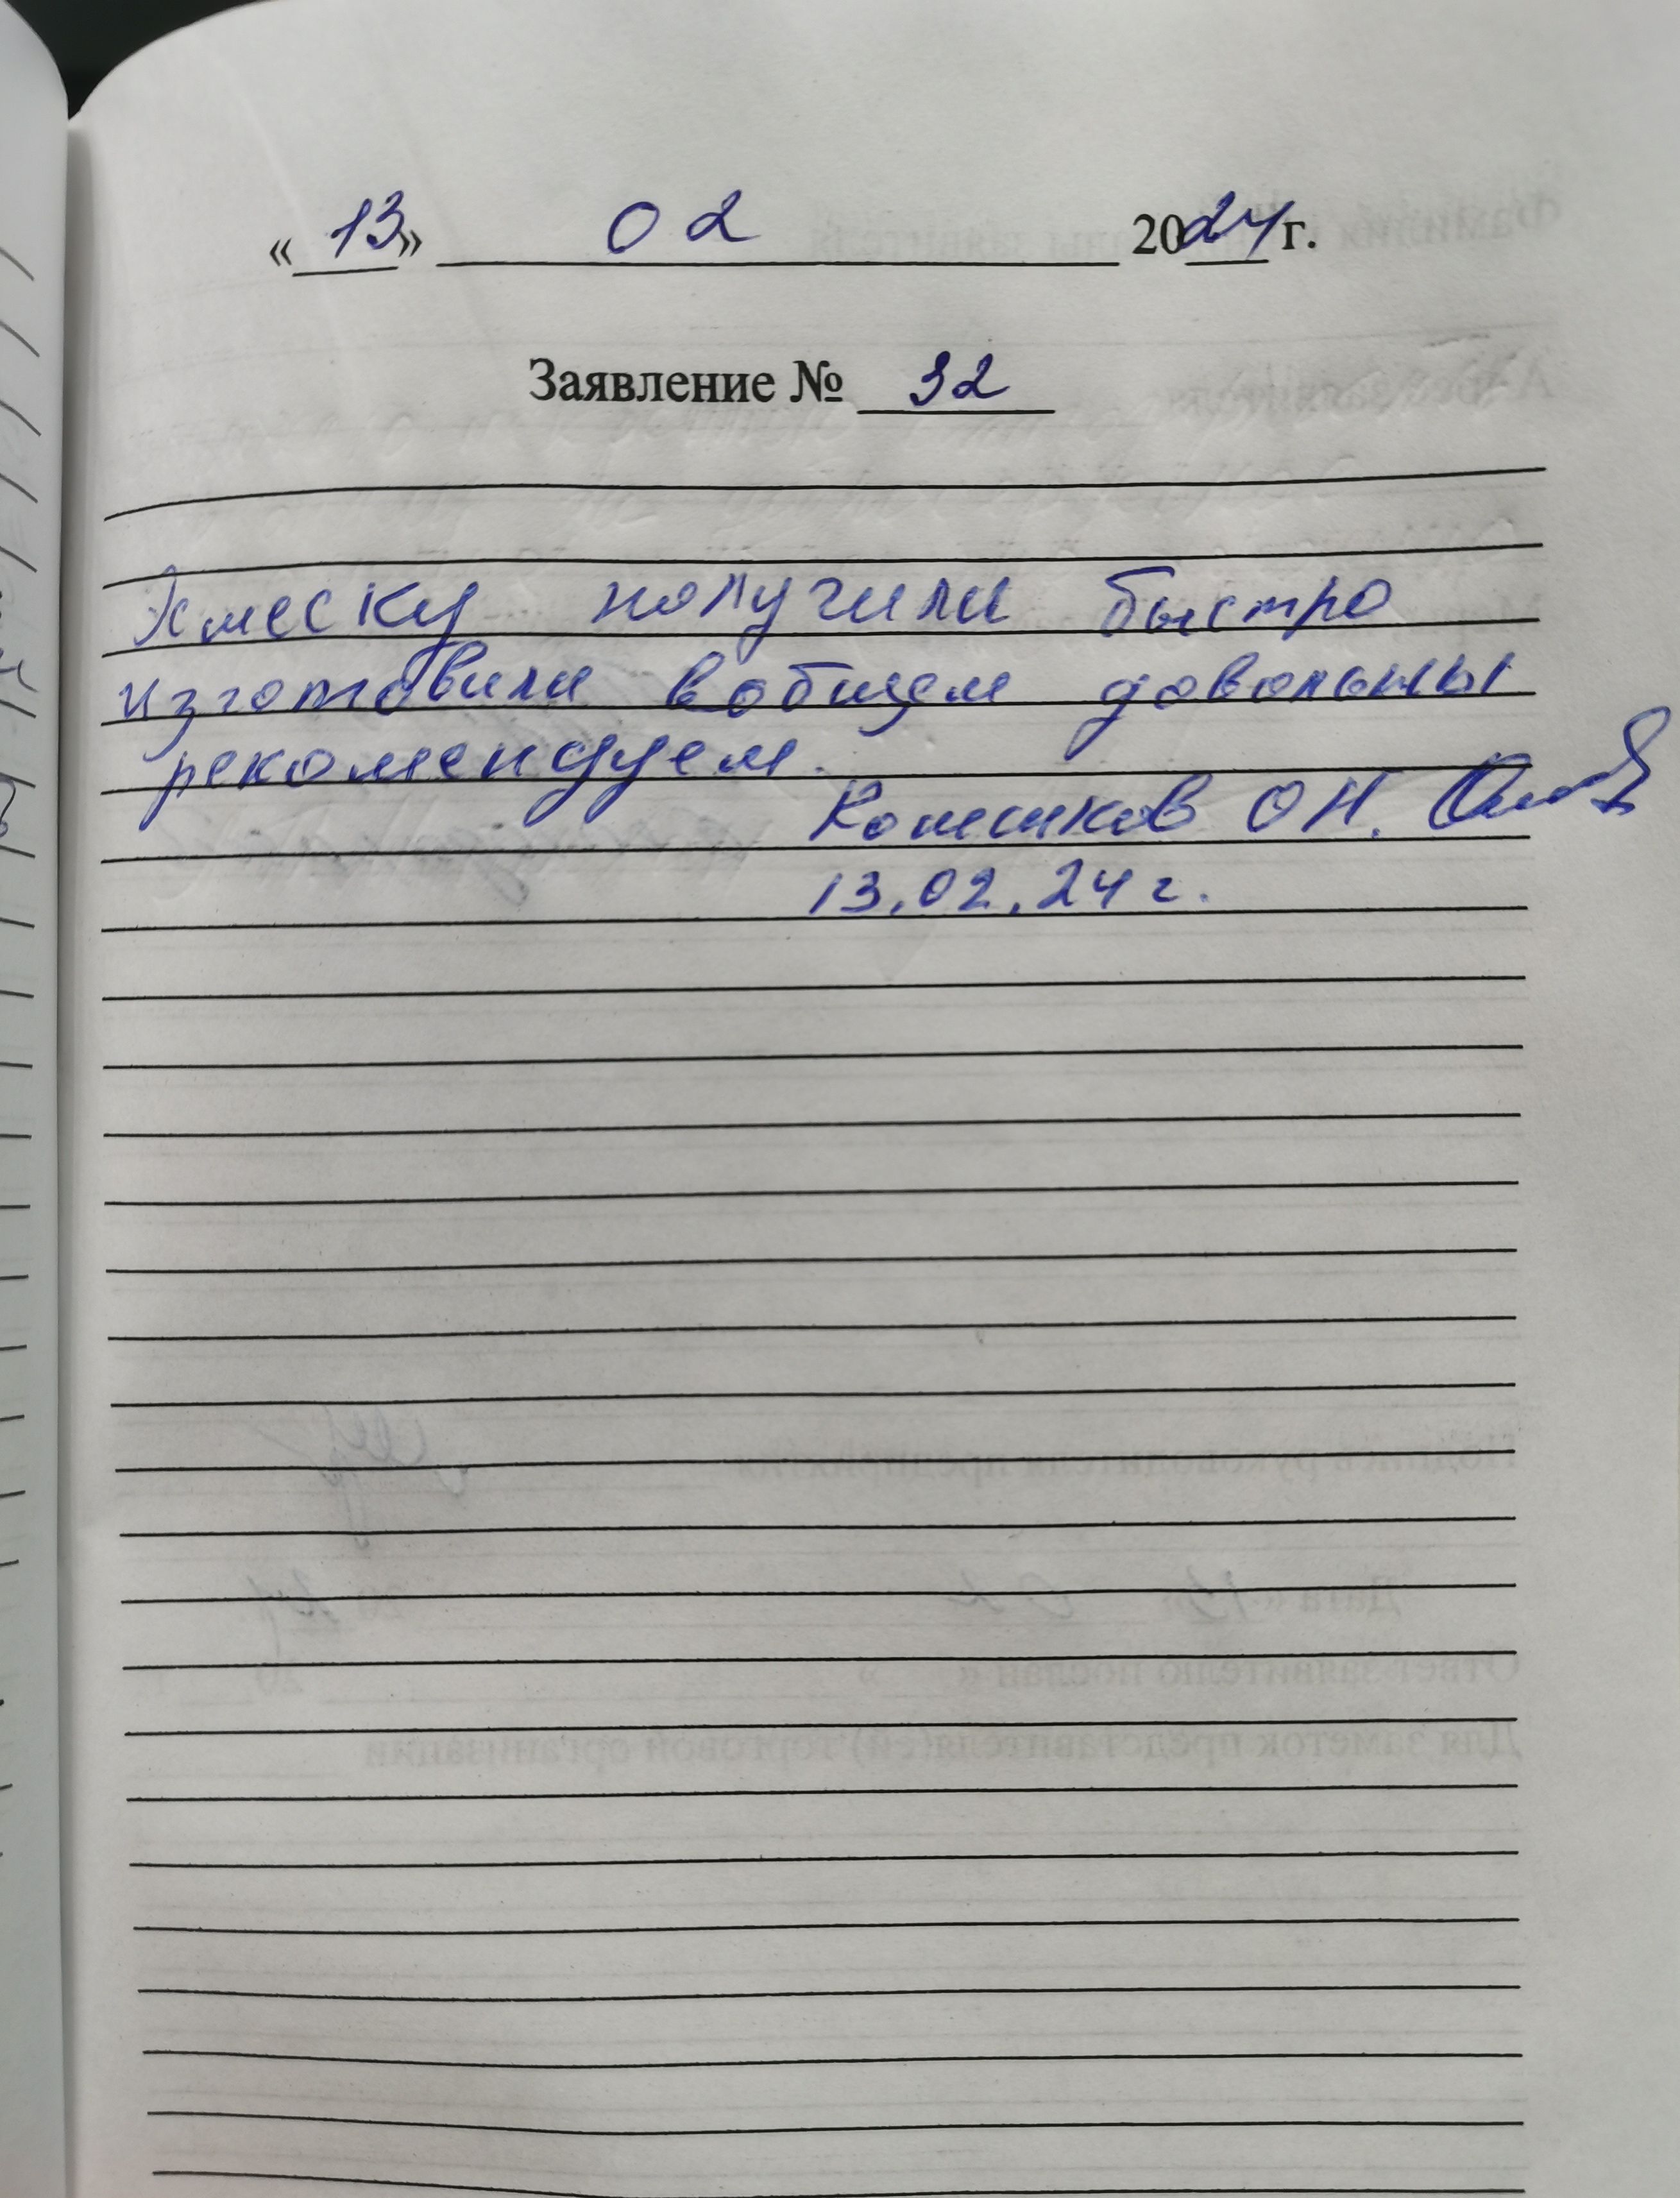 «13» 02 2024 г.
Заявление № 32
получили быстро
изготовили вобщем довольны
рекомендуем.
ОН.
13.02.24 г.